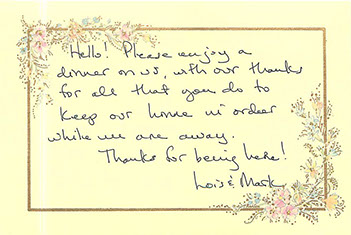 Hello! Please enjoy a
dinner on us, with our thanks
for all that you do to
keep our home in order
while we are away.
Thanks for being here!
Lois & Mark